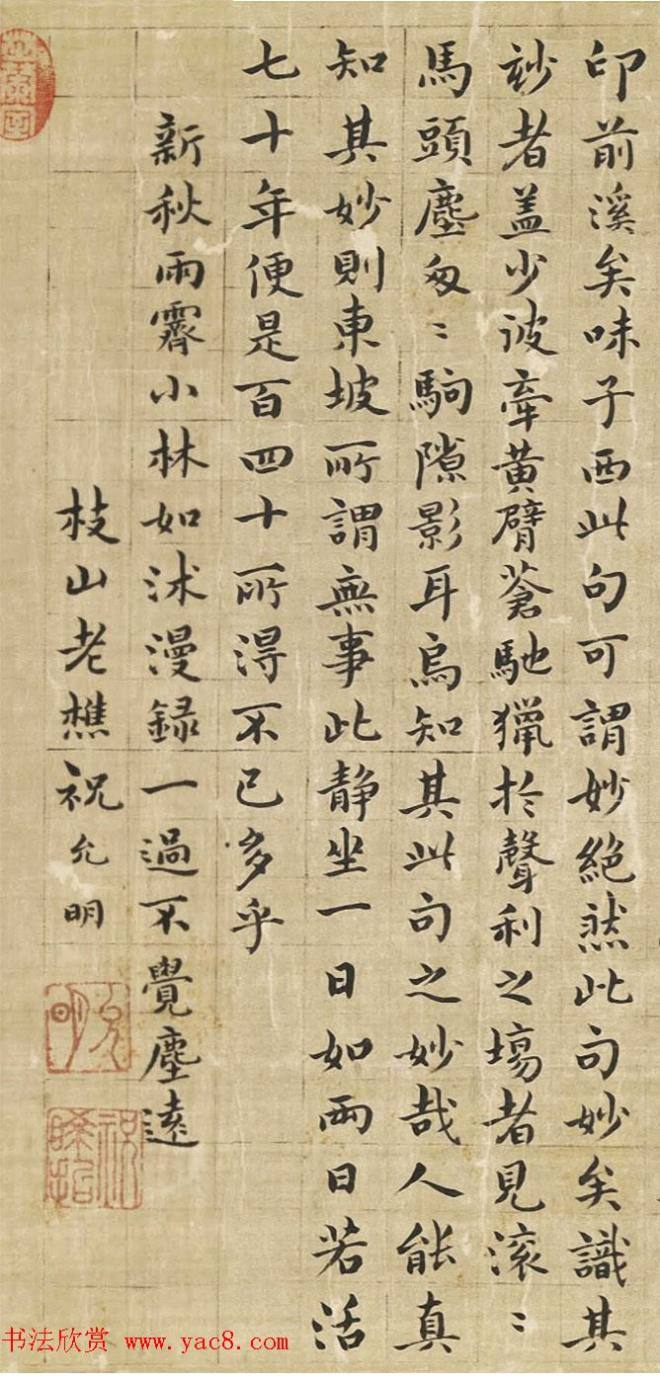 印前溪矣味子西此句可謂妙絕然此句妙矣識其
玅者盖少彼牽黄臂蒼馳獵扵聲利之場者見滚〻
馬頭塵匆〻駒隙影耳烏知其此句之妙哉人能真
知其妙則東坡所謂無事此静坐一日如兩日若活
七十年便是百四十所得不已多乎
新秋雨霽小林如沭漫録一過不覺塵遠
枝山老樵祝允明
允明
祝晞哲
书法欣赏 www.yac8.com